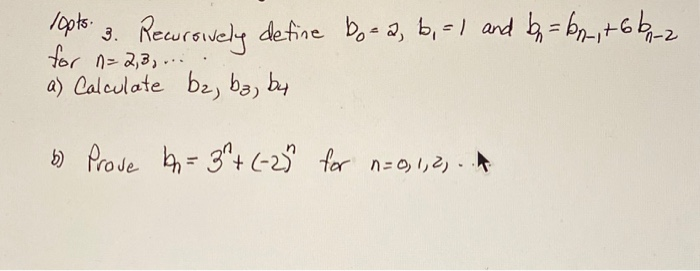 10pts. 3. Recursively define b₀ = 2, b₁ = 1 and bₙ = bₙ₋₁ + 6bₙ₋₂
for n = 2,3, ...
a) Calculate b₂, b₃, b₄
b) Prove bₙ = 3ⁿ + (-2)ⁿ for n = 0,1,2, ...